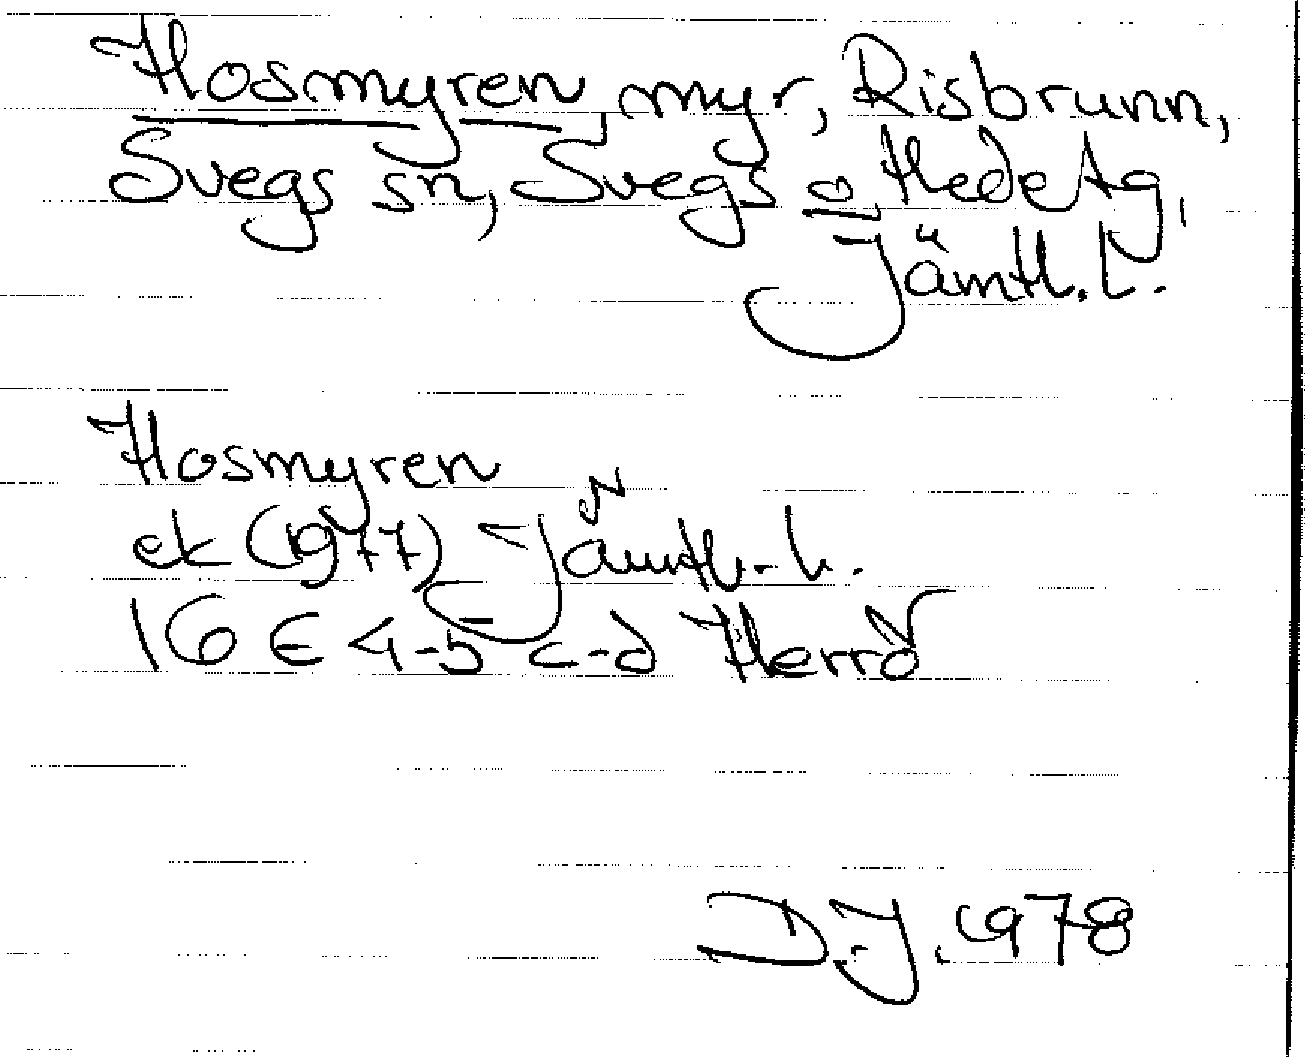 Hosmyren, myr, Risbrunn,
Svegs sn, Svegs o. Hede tg,
Jämtl. L.
Hosmyren
ek (1977) Jämtl. L.
16 E 4-5 c-d Herrö
D.J. 1978